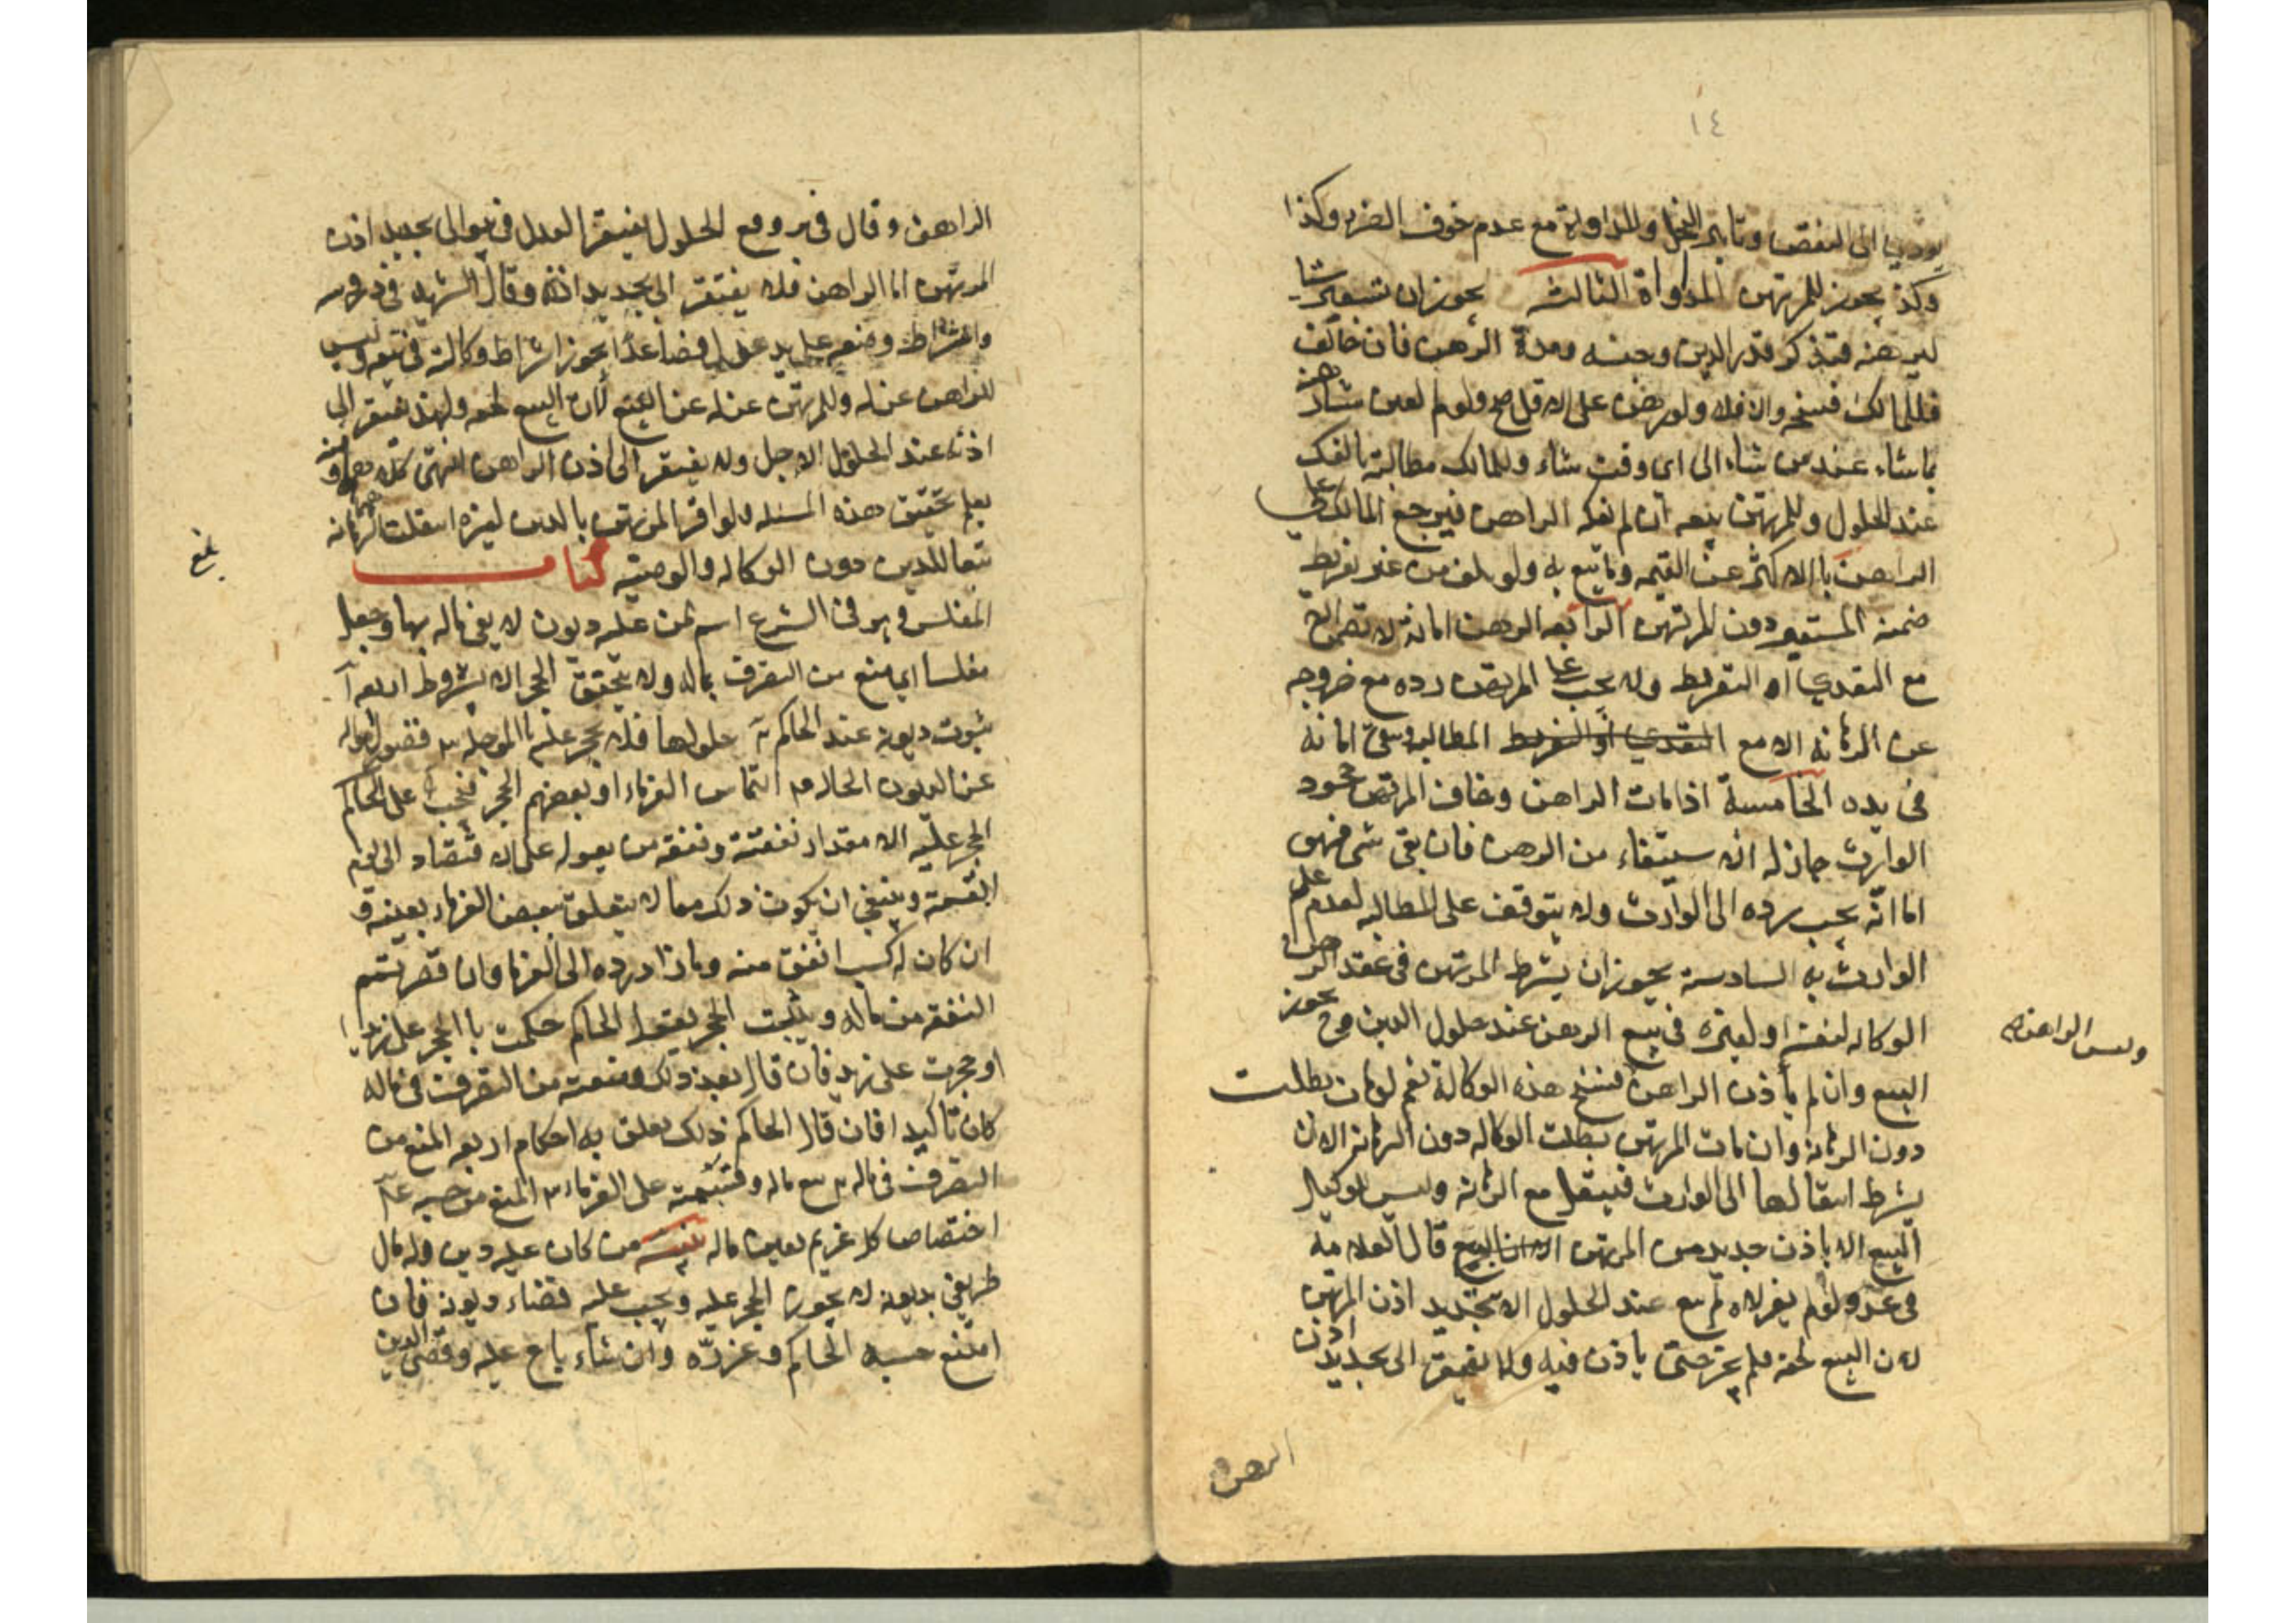 ١٤
يودي الى النقص وتابير النخل والمداواة مع عدم خوف الضرر وكذا
وكذا يجوز للمرتهن المداواة الثالثة يجوز ان يستعير شيا
ليرهنه فتذكر قدر الدين وجنسه ومدة الرهن فان خالف
فللمالك فسخه والا فلا ولو رهن على الاقل صح ولو لم يعين شيا رهنه
بما شاء عند من شاء الى اي وقت شاء وللمالك مطالبة بالفك
عند الحلول وللمرتهن بيعه ان لم يفكه الراهن فيرجع المالك على
الراهن باالاكثر من القيمه وما بيع به ولو تلف من غير تفريط
ضمنه المستعير دون المرتهن الرابعه الرهن امانة لا تضمن الا
مع التعدي او التفريط ولا يجب على المرتهن رده مع خروجه
عن الرهانه الا مع التعدي او التفريط المطالبه ويبقى امانه
في يده الخامسة اذا مات الراهن وخاف المرتهن جحود
الوارث جاز له ان سيتفاء من الرهن فان بقى شي فهو
امانة يجب رده الى الوارث ولا يتوقف على المطالبه لعدم علم
الوارث به السادسة يجوز ان يشرط المرتهن في عقد الرهن
الوكاله لنفسه او لغيره في بيع الرهن عند حلول الدين فيجوز
وليس الراهن
البيع وان لم يأذن الراهن فسخ هذه الوكالة نعم لو مات بطلت
دون الرهانه وان مات المرتهن بطلت الوكاله دون الرهانه الا ان
يشرط انتقالها الى الوارث فينتقل مع الرهانه وليس للوكيل
البيع الا باذن جديد من المرتهن الا ان البيع قال العلامه
في عد ولو لم يعزلاه لم يبع عند الحلول الا بتجديد اذن المرتهن
لان البيع لحقه فلم يجز حتى ياذن فيه ولا يفتقر الى تجديد اذن
الرهن
الراهن وقال في ير ومع الحلول يفتقر العدل في بيع الى تجديد اذن
المرتهن اما الراهن فلا يفتقر الى تجديد اذنه وقال الشهيد في دروسه
واشتراط وضعه على يد عدل فصاعدا يجوز اشتراط وكالته في بيعه وليس
للراهن عزله وللمرتهن عزله عن البيع لان البيع لحقه ولهذا يفتقر الى
اذنه عند الحلول الاجل ولا يفتقر الى اذن الراهن انتهى كلامه ومنه
يعلم تحقيق هذه المسئله ولو اقر المرتهن بالدين لغيره انتقلت الرهانه
تبعا للدين دون الوكاله والوصيه كتاب
بلغ
المفلس وهو في الشرع اسم لمن عليه ديون لا يفي ماله بها وجعل
مفلسا اي منع من التصرف بماله ولا يتحقق الحجر الا بشروط اربعه ا
ثبوت ديونه عند الحاكم ٢ حلولها فلا يحجر عليه باالموجله ٣ قصور امواله
عن الديون الحاله ٤ التماس الغرماء او بعضهم الحجر فيجب على الحاكم
الحجر عليه الا مقدار نفقته ونفقه من يعوله على الاقتصاد الى يوم
القسمة وينبغي ان يكون ذلك مما لا يتعلق ببعض الغرماء بعينه و
ان كان له كسب انفق منه وما زاد رده الى الغرما وان قصر تتمم
النفقه من ماله ويثبت الحجر بقول الحاكم حكمت باالحجر على زيد
او حجرت على زيد فان قال بعد ذلك ومنعته من التصرف في ماله
كان تاكيدا فان قال الحاكم ذلك تعلق به احكام اربعه المنع من
التصرف في ماله ٢ بيع ماله وقسمته على الغرماء ٣ المنع من حبسه ٤
اختصاص كل غريم بعين ماله من كان عليه دين وله مال
يفي بديونه لا يجوز الحجر عليه ويجب عليه قضاء ديونه فان
امتنع حبسه الحاكم وعزره وان شاء باع عليه وقضى الدين